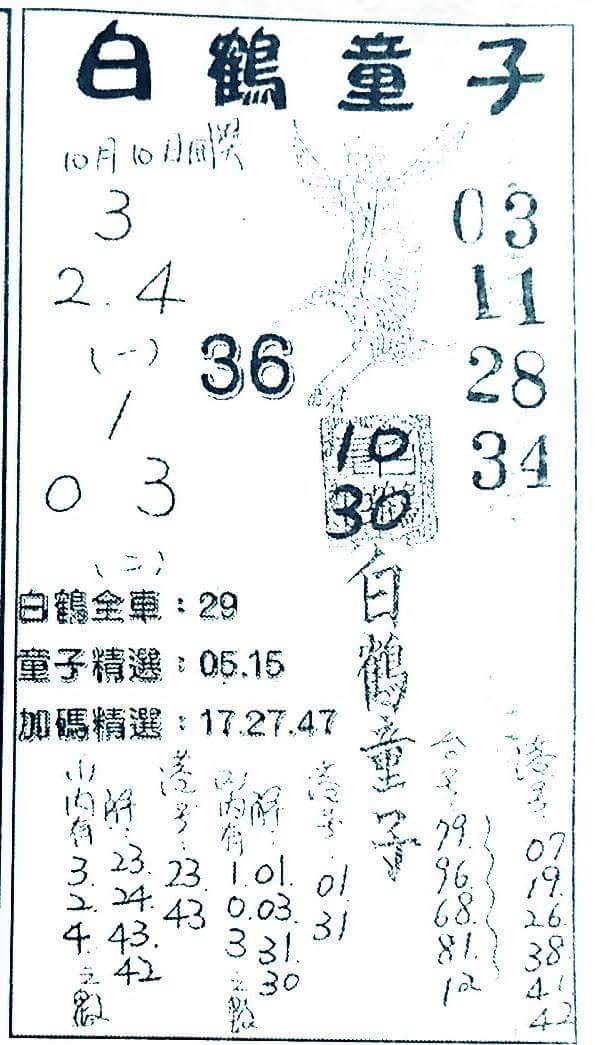 白鶴童子
10月10日開獎
3
2.4
(一)
1
0 3
(二)
36
03
11
28
34
10
30
白鶴童子
白鶴全車：29
童子精選：05.15
加碼精選：17.27.47
山内有
3.
2.
4.
之數
解：
23.
24.
43.
42
港号：
23.
43
内有
1.
0.
3
之數
解：
01.
03.
31.
30
港号：
01
31
台号：
79.
96.
68.
81.
12
港号：
07
19.
26
38
41
42